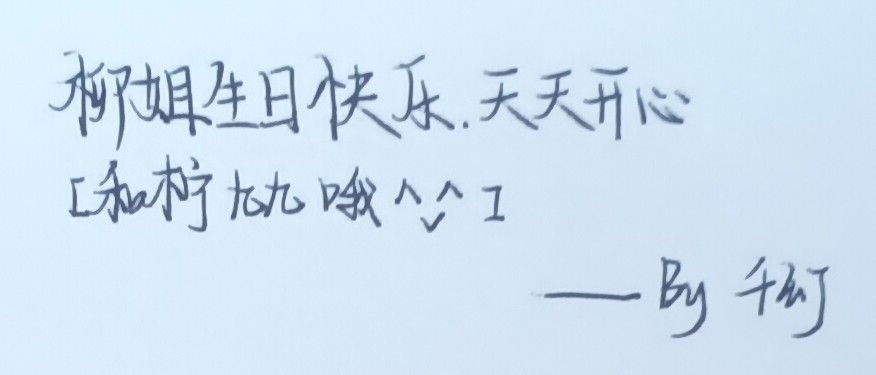 柳姐生日快乐.天天开心
[和柠九九哦^ˇ^]
——By 千幻